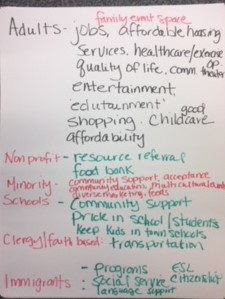 family event space
Adults - jobs, affordable housing
services. healthcare/exercise op.
quality of life, comm. theater
entertainment
'edutainment'
good
shopping. childcare
affordability
Nonprofit - resource referral
food bank
Minority - community support, acceptance
community education, multicultural
diverse marketing, foods
Schools - Community Support
Pride in school/students
keep kids in town schools
Clergy/faith based - transportation
- programs ESL
Immigrants - social service citizenship
language support